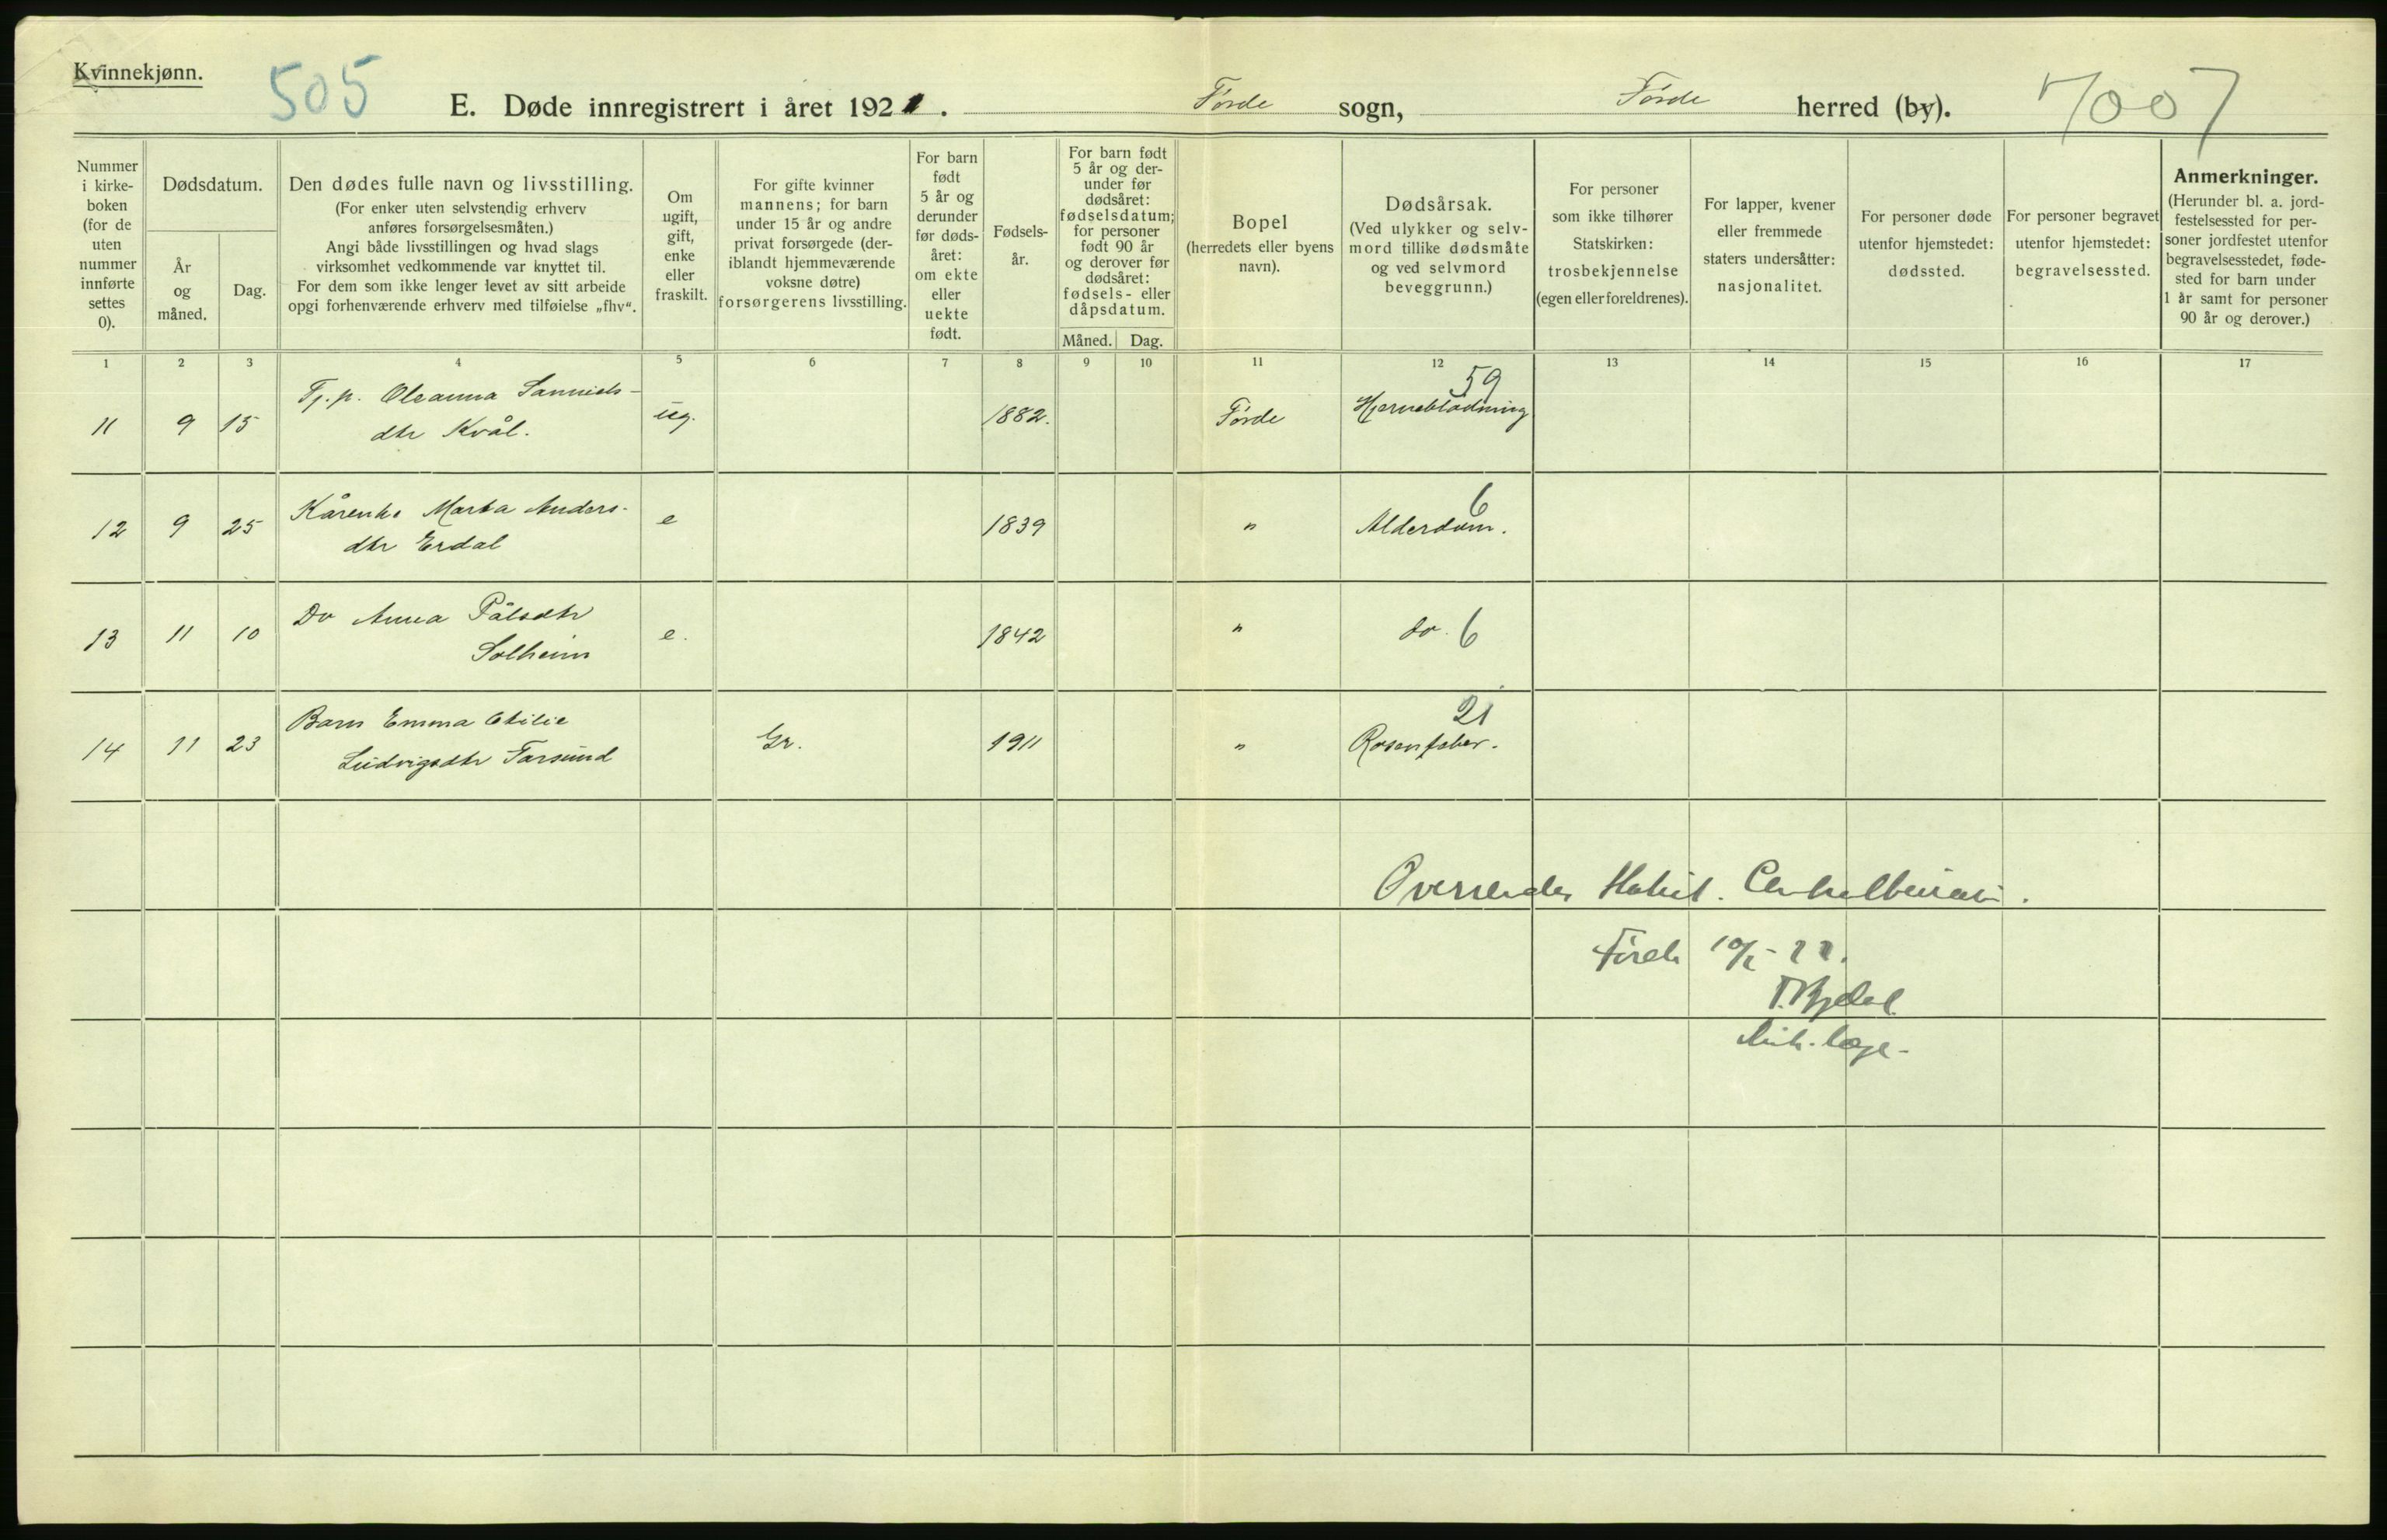 Kvinnekjønn.
505
E. Døde innregistrert i året 1921. Førde sogn, Førde herred (by). 7007
Nummer i kirke-boken (for de uten nummer innførte settes 0).
Dødsdatum.
År og måned.
Dag.
Den dødes fulle navn og livsstilling.
(For enker uten selvstendig erhverv
anføres forsørgelsesmåten.)
Angi både livsstillingen og hvad slags
virksomhet vedkommende var knyttet til.
For dem som ikke lenger levet av sitt arbeide
opgi forhenværende erhverv med tilføielse „fhv“.
Om ugift, gift, enke eller fraskilt.
For gifte kvinner
mannens; for barn
under 15 år og andre
privat forsørgede (der-
iblandt hjemmeværende
voksne døtre)
forsørgerens livsstilling.
For barn født 5 år og derunder før døds-året: om ekte eller uekte født.
Fødsels-år.
For barn født
5 år og der-
under før
dødsåret:
fødselsdatum;
for personer
født 90 år
og derover før
dødsåret:
fødsels- eller
dåpsdatum.
Måned. Dag.
Bopel
(herredets eller byens
navn).
Dødsårsak.
(Ved ulykker og selv-
mord tillike dødsmåte
og ved selvmord
beveggrunn.)
For personer
som ikke tilhører
Statskirken:
trosbekjennelse
(egen eller foreldrenes).
For lapper, kvener
eller fremmede
staters undersåtter:
nasjonalitet.
For personer døde
utenfor hjemstedet:
dødssted.
For personer begravet
utenfor hjemstedet:
begravelsessted.
Anmerkninger.
(Herunder bl. a. jord-
festelsessted for per-
soner jordfestet utenfor
begravelsesstedet, føde-
sted for barn under
1 år samt for personer
90 år og derover.)
1 2 3 4 5 6 7 8 9 10 11 12 13 14 15 16 17
59
11 9 15 Tj.p. Oleanna Samuels-
dtr Kvål. ug. 1882. Førde Hjerneblødning
6
12 9 25 Kårenhe Marta Anders-
dtr Erdal e 1839 " Alderdom.
13 11 10 Do Anna Pålsdtr
Solheim e. 1842 " do. 6
21
14 11 23 Barn Emma Otilie
Ludvigsdtr Farsund Gr. 1911 " Rosenfeber.
Oversendes Statist. Centralbureau.
Førde